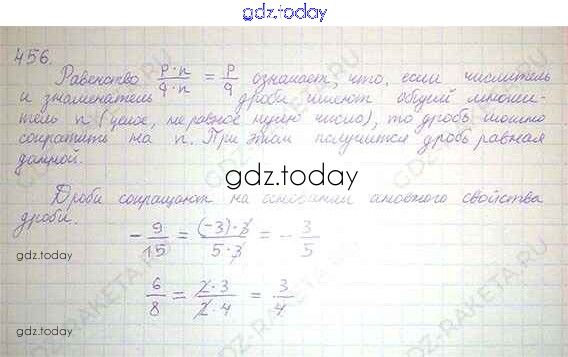 gdz.today
456.
Равенство p·n/q·n = p/q означает что, если числитель
и знаменатель дроби имеют общий множи-
тель n (целое, не равное нулю число), то дробь можно
сократить на n. При этом получится дробь равная
данной.
gdz.today
Дроби сокращают на основании основного свойства
дроби.
- 9/15 = (-3)·3/5·3 = - 3/5
gdz.today
6/8 = 2·3/2·4 = 3/4
gdz.today
GDZ-RAKETA.RU